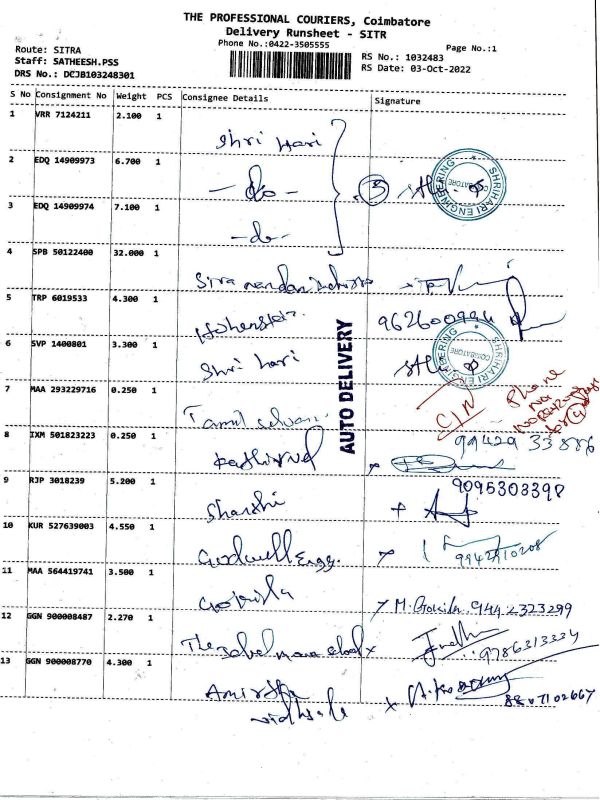 THE PROFESSIONAL COURIERS, Coimbatore
Delivery Runsheet - SITR
Phone No.:0422-3505555
Page No.:1
Route: SITRA
Staff: SATHEESH.PSS
DRS No.: DCJB103248301
RS No.: 1032483
RS Date: 03-Oct-2022
S No Consignment No Weight PCS Consignee Details Signature
1 VRR 7124211 2.100 1 Shri Hari
2 EDQ 14909973 6.700 1 - do - 3
SHRIHARI ENGINEERING COIMBATORE
3 EDQ 14909974 7.100 1 - do -
4 SPB 50122400 32.000 1
5 TRP 6019533 4.300 1 Hohenstein
6 SVP 1400801 3.300 1 Shri hari
SHRIHARI ENGINEERING COIMBATORE
AUTO DELIVERY
7 MAA 293229716 0.250 1 Tamil selvan C/N Phone No
99429 33886
8 IXM 501823223 0.250 1 Kathirvel
9 RJP 3018239 5.200 1 9095303398
10 KUR 527639003 4.550 1 Goodwell Engg.
11 MAA 564419741 3.500 1 9442323299
12 GGN 900008487 2.270 1 The
9786313334
13 GGN 900008770 4.300 1 Amirtha
8807102667